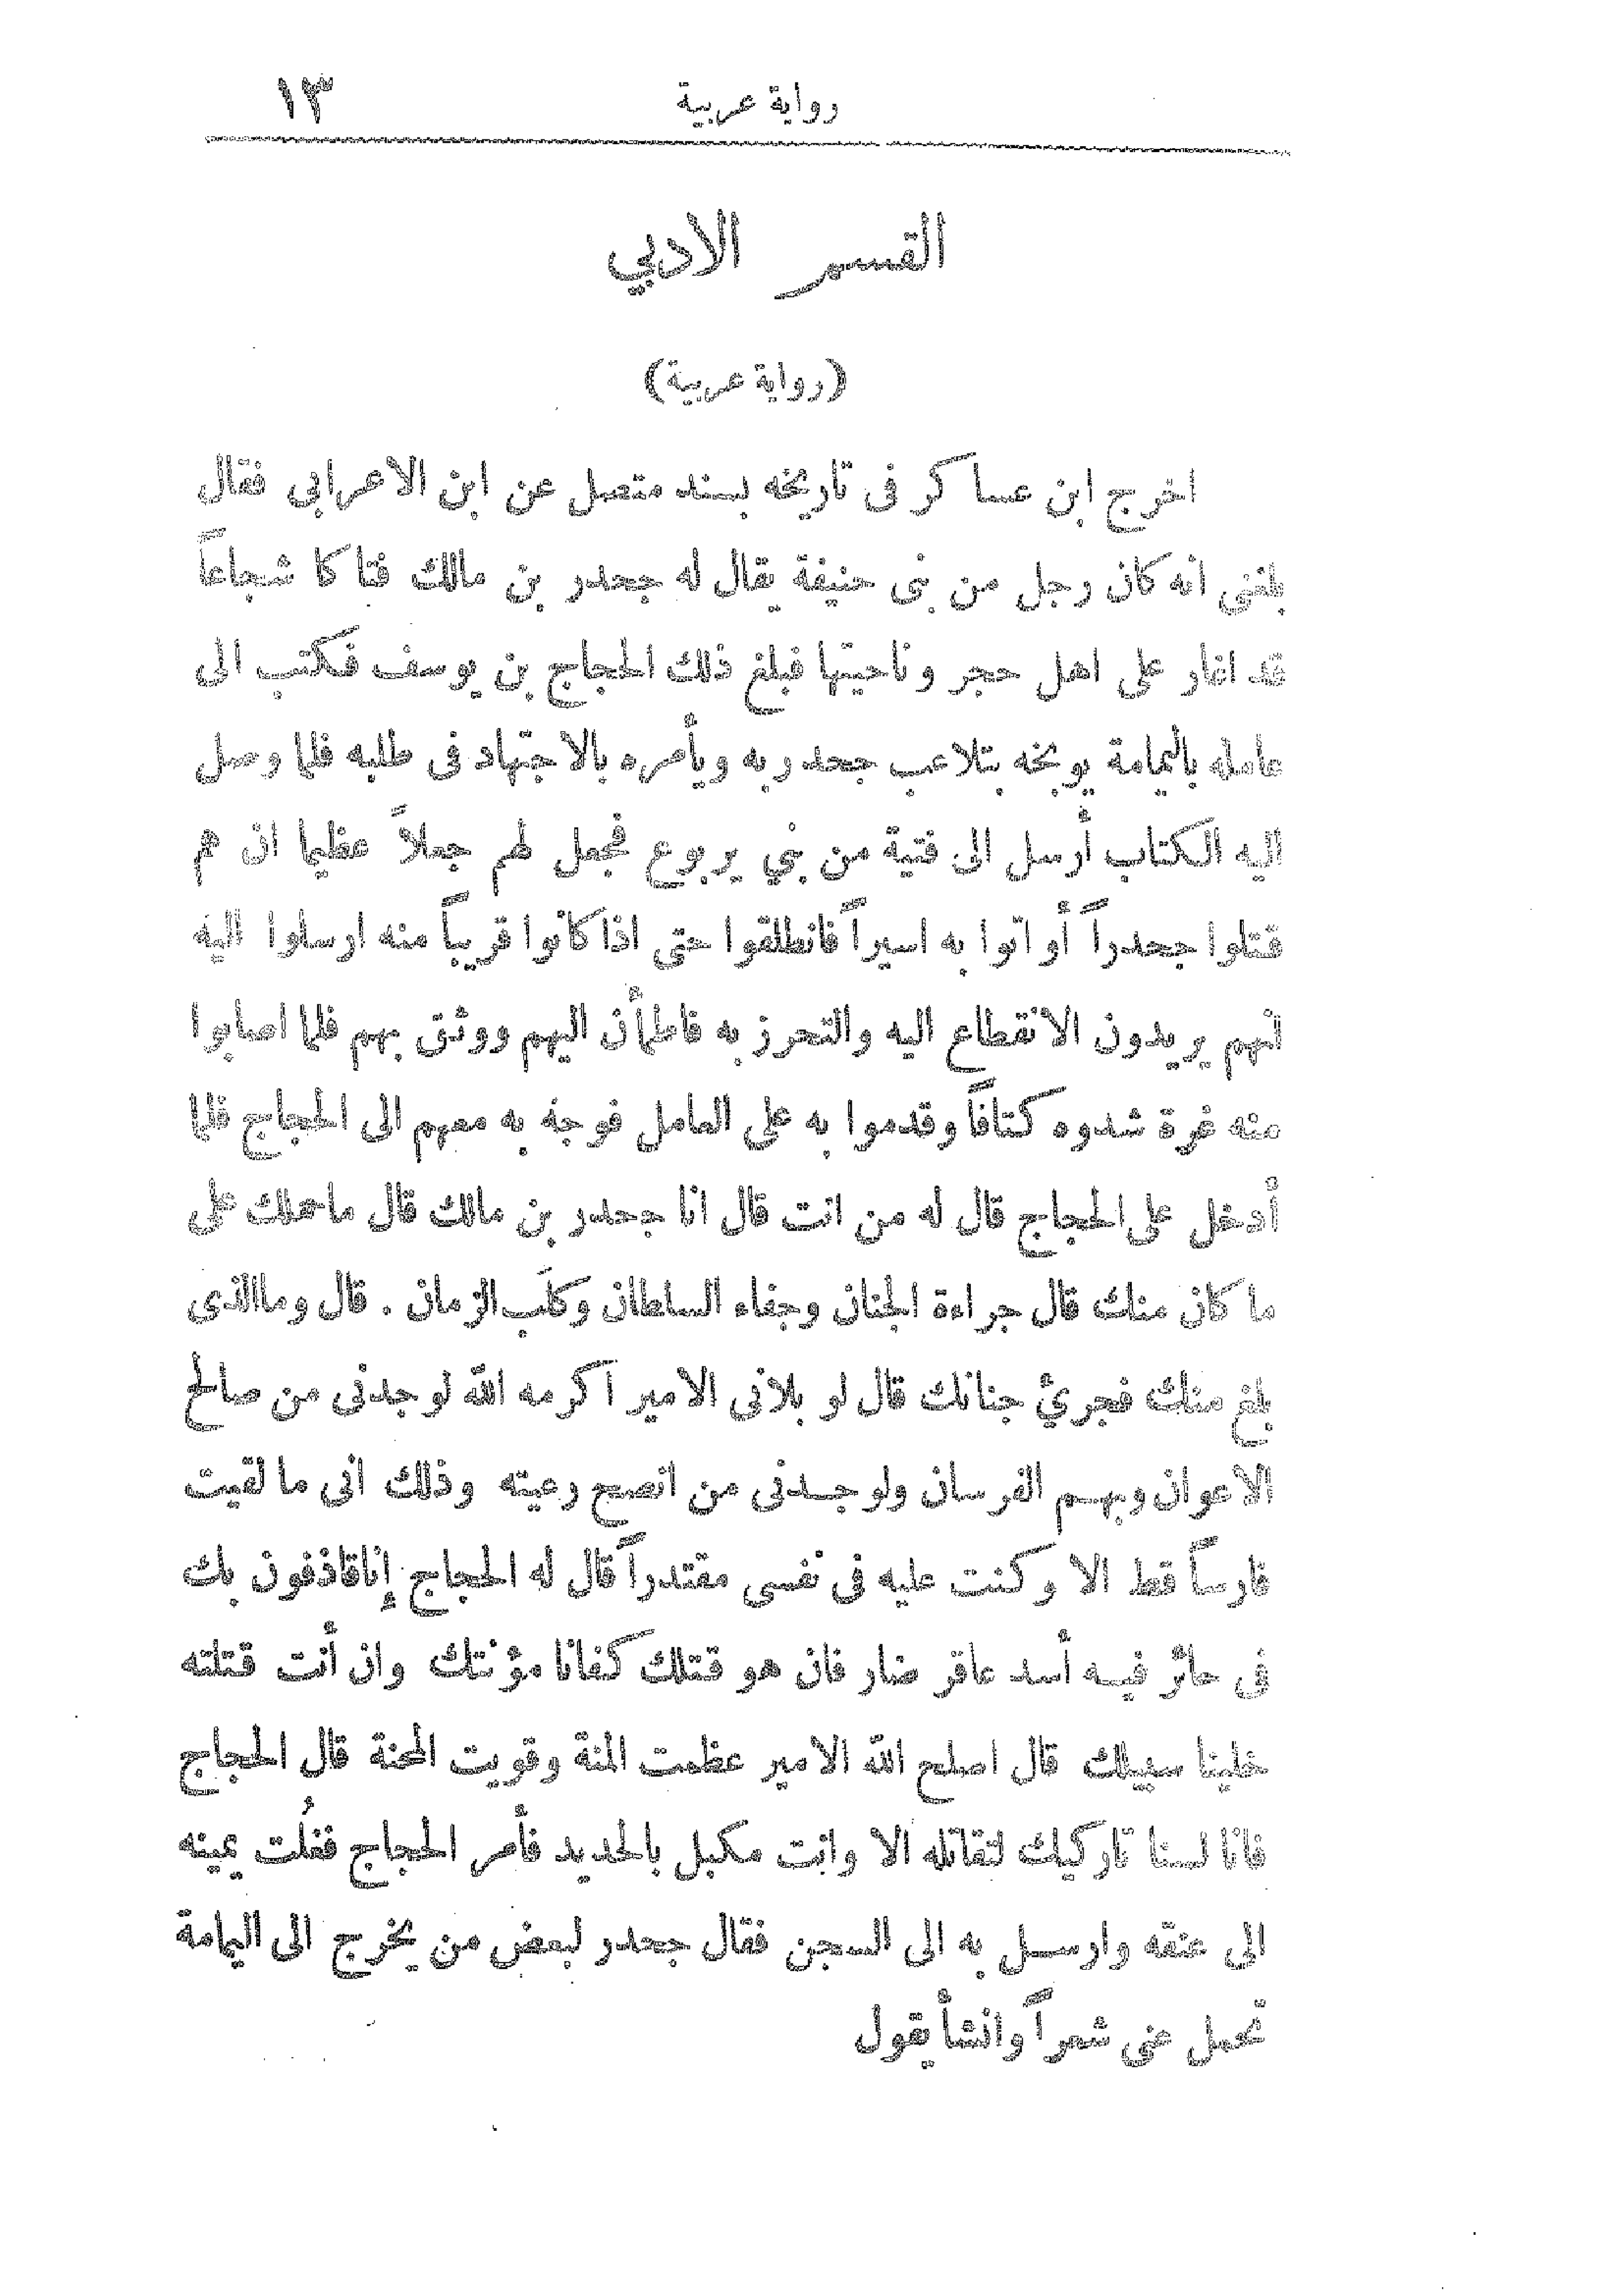 رواية عربية ١٣
القسم الادبي
(رواية عربية)
اخرج ابن عساكر فى تاريخه بسند متصل عن ابن الاعرابي فقال
بلغنى انه كان رجل من بنى حنيفة يقال له جحدر بن مالك فتاكا شجاعاً
قد اغار على اهل حجر وناحيتها فبلغ ذلك الحجاج بن يوسف فكتب الى
عامله باليمامة يوبخه بتلاعب جحدر به ويأمره بالاجتهاد فى طلبه فلما وصل
اليه الكتاب أرسل الى فتية من بني يربوع فجعل لهم جعلاً عظيما ان هم
قتلوا جحدراً أو اتوا به اسيراً فانطلقوا حتى اذا كانوا قريباً منه ارسلوا اليه
انهم يريدون الانقطاع اليه والتحرز به فاطمأن اليهم ووثق بهم فلما اصابوا
منه غرة شدوه كتافاً وقدموا به على العامل فوجه به معهم الى الحجاج فلما
أدخل على الحجاج قال له من انت قال انا جحدر بن مالك قال ما حملك على
ما كان منك قال جراءة الجنان وجفاء السلطان وكلَب الزمان . قال وما الذى
بلغ منك فجرئ جنانك قال لو بلانى الامير اكرمه الله لوجدنى من صالح
الاعوان وبهم الفرسان ولوجدنى من انصح رعيته وذلك انى ما لقيت
فارساً قط الا وكنت عليه فى نفسى مقتدراً قال له الحجاج إنا قاذفون بك
فى حائر فيه أسد عاقر ضار فان هو قتلك كفانا مؤنتك وان أنت قتلته
خلينا سبيلك قال اصلح الله الامير عظمت المنة وقويت المحنة قال الحجاج
فانا لسنا تاركيك لتقاتله الا وانت مكبل بالحديد فأمر الحجاج فغُلت يمينه
الى عنقه وارسل به الى السجن فقال جحدر لبعض من يخرج الى اليمامة
تحمل عنى شعراً وانشأ يقول